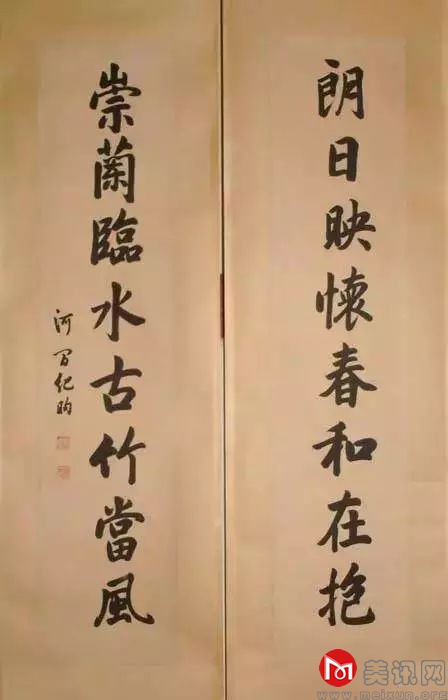 朗日映懷春和在抱
崇蘭臨水古竹當風
河间纪昀
美讯网
www.meixun.org